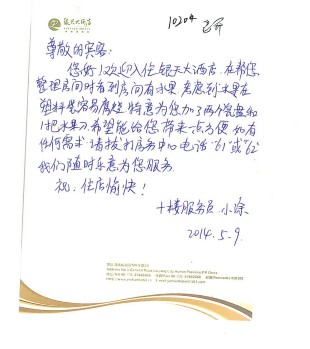 银天大酒店
10204
尊敬的宾客:
您好!欢迎入住银天大酒店,在帮您
整理房间时看到房间有水果,考虑到水果在
塑料是容易腐烂,特意为您加了两个瓷盘和
1把水果刀,希望能给您带来一点方便,如有
任何需求,请拔打房务中心电话"61"或"62"
我们随时乐意为您服务.
祝:住店愉快!
十楼服务员 小徐
2014.5.9.